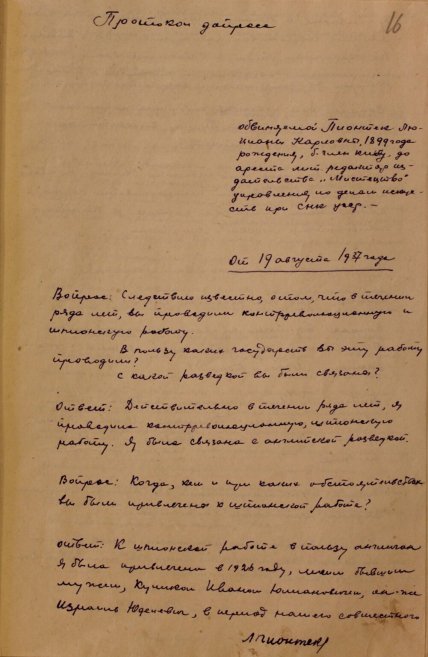 16
Протокол допроса
обвиняемой Пионтек Лю-
цианы Карловны, 1899 года
рождения, б. член КП(б)У. до
ареста лит редактор из-
дательства „Мистецтво"
управления по делам искус-
ств при СНК УССР. –
От 19 августа 1937 года
Вопрос: Следствию известно, о том, что в течении
ряда лет, вы проводили контрреволюционную и
шпионскую работу.
В пользу каких государств вы эту работу
проводили?
С какой разведкой вы были связаны?
Ответ: Действительно в течении ряда лет, я
проводила контрреволюционную, шпионскую
работу. Я была связана с английской разведкой.
Вопрос: Когда, кем и при каких обстоятельствах
вы были привлечены к шпионской работе?
Ответ: К шпионской работе в пользу англичан
я была привлечена в 1926 году, моим бывшим
мужем, Иваном он-же
Израиль в период нашего совместного
Л Пионтек